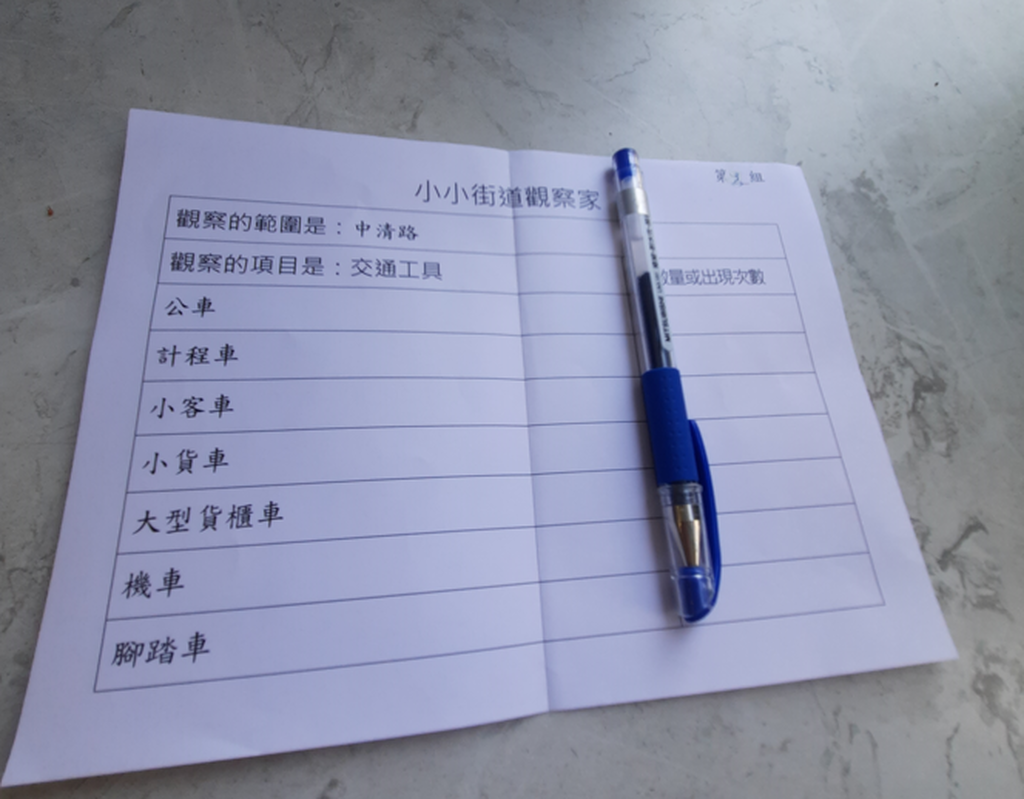 第 組
小小街道觀察家
觀察的範圍是：中清路
觀察的項目是：交通工具
量或出現次數
公車
計程車
小客車
小貨車
大型貨櫃車
機車
腳踏車